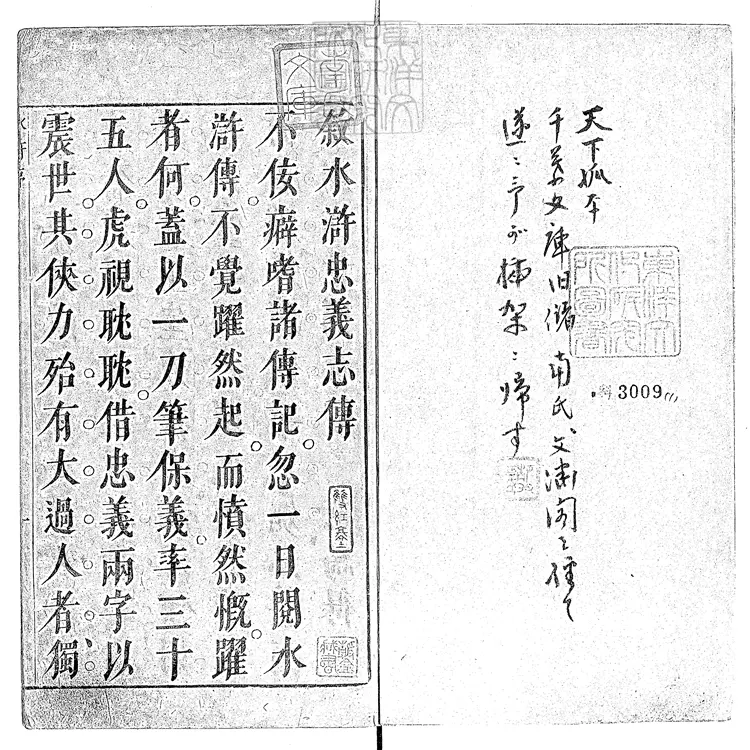 天下孤本
千葉文庫旧儲 南氏 文淵閣
遂ニ予が插架ニ帰す
3009
敘水滸忠義志傳
雙紅堂
不佞癖嗜諸傳記忽一日閱水
滸傳不覺躍然起而憤然慨躍
者何蓋以一刀筆保義率三十
五人虎視眈眈借忠義兩字以
震世其俠力殆有大過人者獨